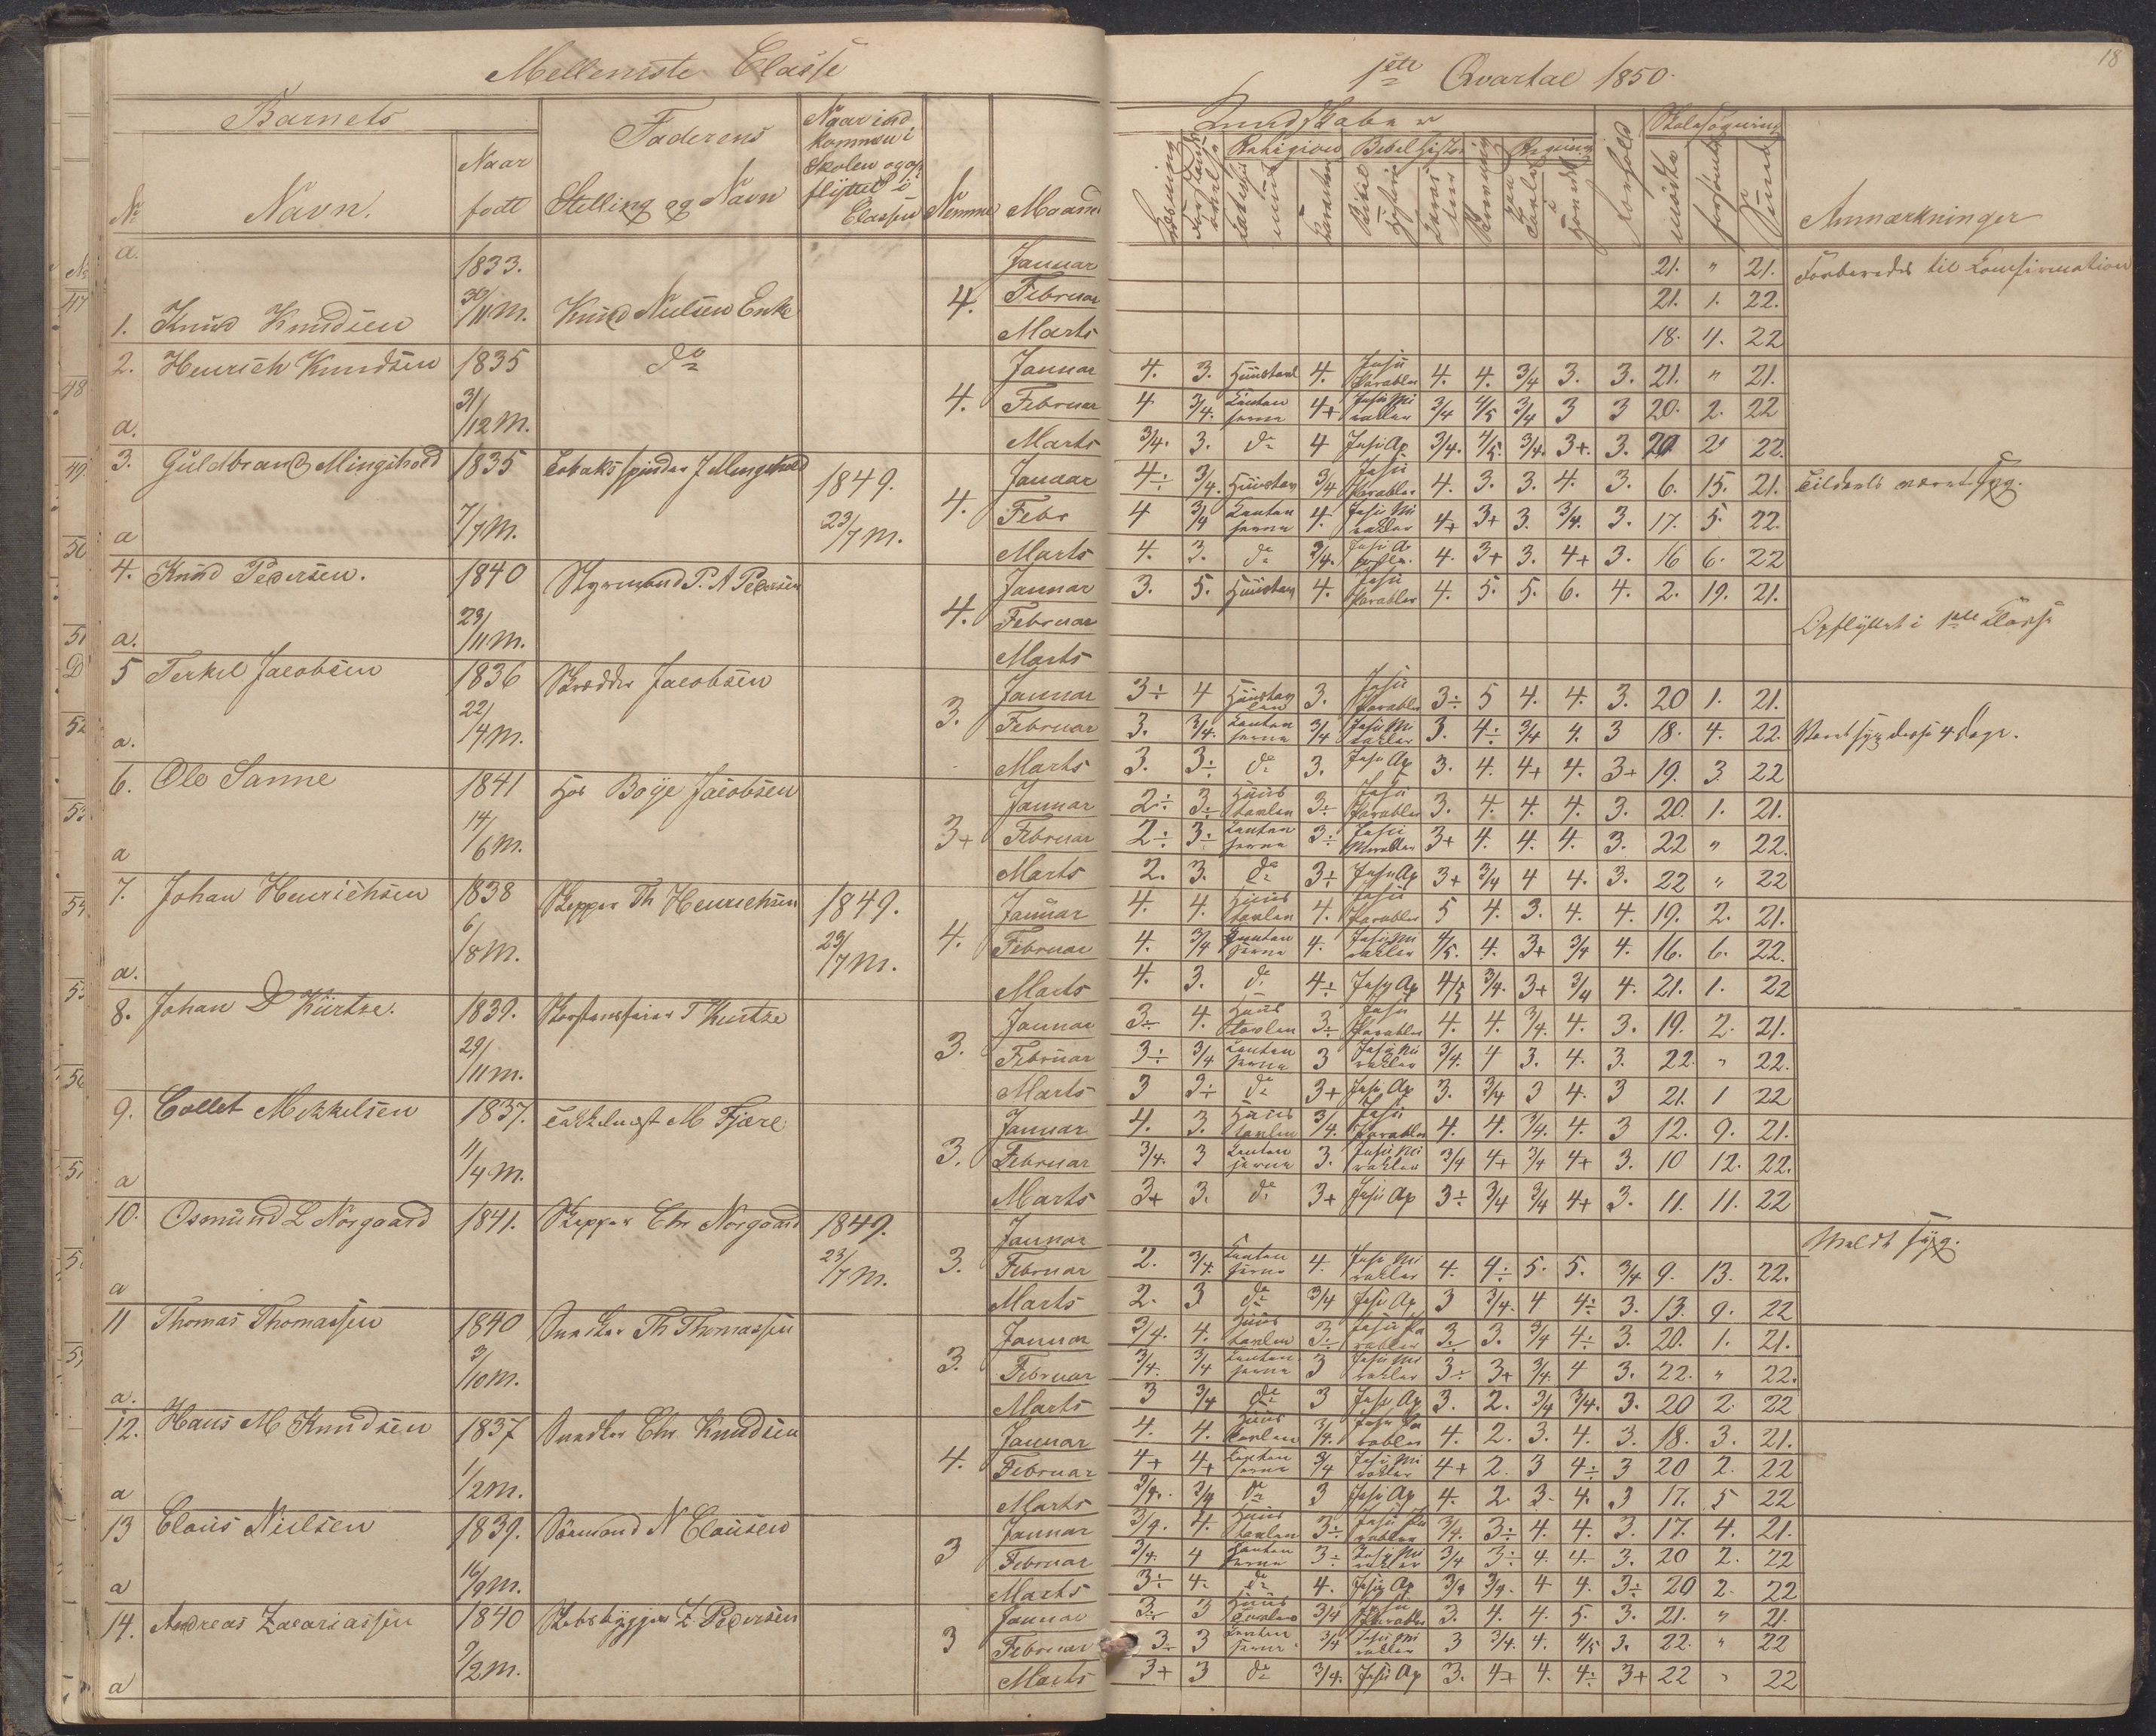 Mellemste Classe
1ste Qvartal 1850.
18
Barnets
Faderens
Stilling og Navn
Naar ind
kommen i
Skolen og op
flyttet i
Classen
Nemme
Maaned
Kundskaber
Religion
Bibelhistorie
Regning
Skolesøgning
Anmærkninger
No
Navn.
Naar
født
a.
1. Knud Knudsen 1833. 30/11 M. Knud Nielsen Enke 4.
Januar 21. " 21. Forberedes til Confirmation
Februar 21. 1. 22.
Marts 18. 4. 22
2. Henrich Knudsen 1835 31/12 M. do 4.
Januar 4. 3. Huustavl 4. Jesu Parabler 4. 4. 3/4 3. 3. 21. " 21.
Februar 4 3/4. 4+ Jesu Mirakler 3/4 4/5 3/4 3 3 20. 2. 22
a.
Marts 3/4. 3. do 4 Jesu Ap 3/4. 4/5. 3/4. 3+. 3. 20. 2 22.
3. Guldbrand Mingstrød 1835 7/7 M. Tobaksspinder J Mingstrød 1849. 23/7 M. 4.
Januar 4÷ 3/4. Huustav 3/4 Jesu Parabler 4. 3. 3. 4. 3. 6. 15. 21. Tildeels været syg.
Febr 4 3/4 4. Jesu Mirakler 4+ 3+ 3. 3/4. 3. 17. 5. 22.
a
Marts 4. 3. do 3/4. Jesu Ap 4. 3+ 3. 4+ 3. 16 6. 22
4. Knud Pedersen. 1840 23/11 M. Styrmand P. A Pedersen 4.
Januar 3. 5. Huustav 4. Jesu Parabler 4. 5. 5. 6. 4. 2. 19. 21.
Februar Opflyttet i 1ste Classe
a.
Marts
5 Terkel Jacobsen 1836 22/4 M. Skrædder Jacobsen 3.
Januar 3÷ 4 Huustavlen 3. Jesu Parabler 3÷ 5 4. 4. 3. 20 1. 21.
Februar 3. 3/4. 3/4 Jesu Mirakler 3. 4÷ 3/4 4. 3 18. 4. 22. Været syg disse 4 Dage.
a.
Marts 3. 3÷ do 3. Jesu Ap 3. 4. 4+ 4. 3+ 19. 3 22
6. Ole Sanne 1841 14/6 M. hos Boye Jacobsen 3+
Januar 2÷ 3÷ Huustavlen 3÷ Jesu Parabler 3. 4. 4. 4. 3. 20. 1. 21.
Februar 2÷ 3÷ 3÷ Jesu Mirakler 3+ 4. 4. 4. 3. 22 " 22.
a
Marts 2. 3. do 3÷ Jesu Ap 3+ 3/4 4 4. 3. 22 " 22
7. Johan Henrichsen 1838 6/8 M. Skipper Th Henrichsen 1849. 23/7 M. 4.
Januar 4. 4. Huustavlen 4. Jesu Parabler 5 4. 3. 4. 4. 19. 2. 21.
Februar 4. 3/4 4. Jesu Mirakler 4/5. 4. 3+ 3/4 4. 16. 6. 22.
a.
Marts 4. 3. do 4÷ Jesu Ap 4/5 3/4. 3+ 3/4 4. 21. 1. 22
8. Johan D Kürtze. 1839. 29/11 M. Skorstensfeier T Kurtze 3.
Januar 3÷ 4. Huustavlen 3÷ Jesu Parabler 4. 4. 3/4. 4. 3. 19. 2. 21.
Februar 3÷ 3/4 3 Jesu Mirakler 3/4. 4 3. 4. 3. 22. " 22.
Marts 3 3÷ do 3+ Jesu Ap 3. 3/4 3 4. 3 21. 1 22
9. Collet Mekkelsen 1837. 11/4 M. M Fjære 3.
Januar 4. 3. Huustavlen 3/4. Jesu Parabler 4. 4. 3/4. 4. 3 12. 9. 21.
Februar 3/4. 3 3. Jesu Mirakler 3/4 4+ 3/4 4+ 3. 10 12. 22.
a
Marts 3+ 3. do 3+ Jesu Ap 3÷ 3/4 3/4 4+ 3. 11. 11. 22
10. Osmund L Norgaard 1841. Skipper Chr Norgaard 1849. 23/7 M. 3.
Januar Meldt syg.
Februar 2. 3/4. 4. Jesu Mirakler 4. 4÷ 5. 5. 3/4 9. 13. 22.
a
Marts 2. 3 do 3/4 Jesu Ap 3 3/4. 4 4÷ 3. 13. 9. 22
11 Thomas Thomassen 1840 3/10 M. Snedker Th Thomassen 3.
Januar 3/4. 4. Huustavlen 3÷ Jesu Parabler 3÷ 3. 3/4 4÷ 3. 20. 1. 21.
Februar 3/4. 3/4 3 Jesu Mirakler 3÷ 3+ 3/4. 4 3. 22. " 22.
a.
Marts 3 3/4 do 3 Jesu Ap 3. 2. 3/4 3/4. 3. 20 2. 22
12. Hans M Knudsen 1837 1/2 M. Snedker Chr Knudsen 4.
Januar 4. 4. Huustavlen 3/4. Jesu Parabler 4. 2. 3. 4. 3. 18. 3. 21.
Februar 4+ 4+ 3/4 Jesu Mirakler 4+ 2. 3 4÷ 3 20 2. 22
a
Marts 3/4. 3/4 do 3 Jesu Ap 4. 2. 3. 4. 3 17. 5 22
13 Claus Nielsen 1839. 16/9 M. Sømand N Clausen 3
Januar 3/4. 4. Huustavlen 3÷ Jesu Parabler 3/4. 3÷ 4. 4. 3. 17. 4. 21.
Februar 3/4. 4 3÷ Jesu Mirakler 3/4 3÷ 4. 4. 3. 20 2. 22
a
Marts 3÷ 4. do 4. Jesu Ap 3/4 3/4. 4 4. 3÷ 20 2. 22
14. Andreas Zacariassen 1840 9/2 M. Skibsbygger Z Pedersen 3
Januar 3÷ 3 Huustavlen 3/4 Jesu Parabler 3. 4. 4. 5. 3. 21. " 21.
Februar 3÷ 3 3/4 Jesu Mirakler 3 3/4. 4. 4/5 3. 22. " 22
a
Marts 3+ 3 do 3/4. Jesu Ap 3. 4+ 4. 4÷ 3+ 22 " 22